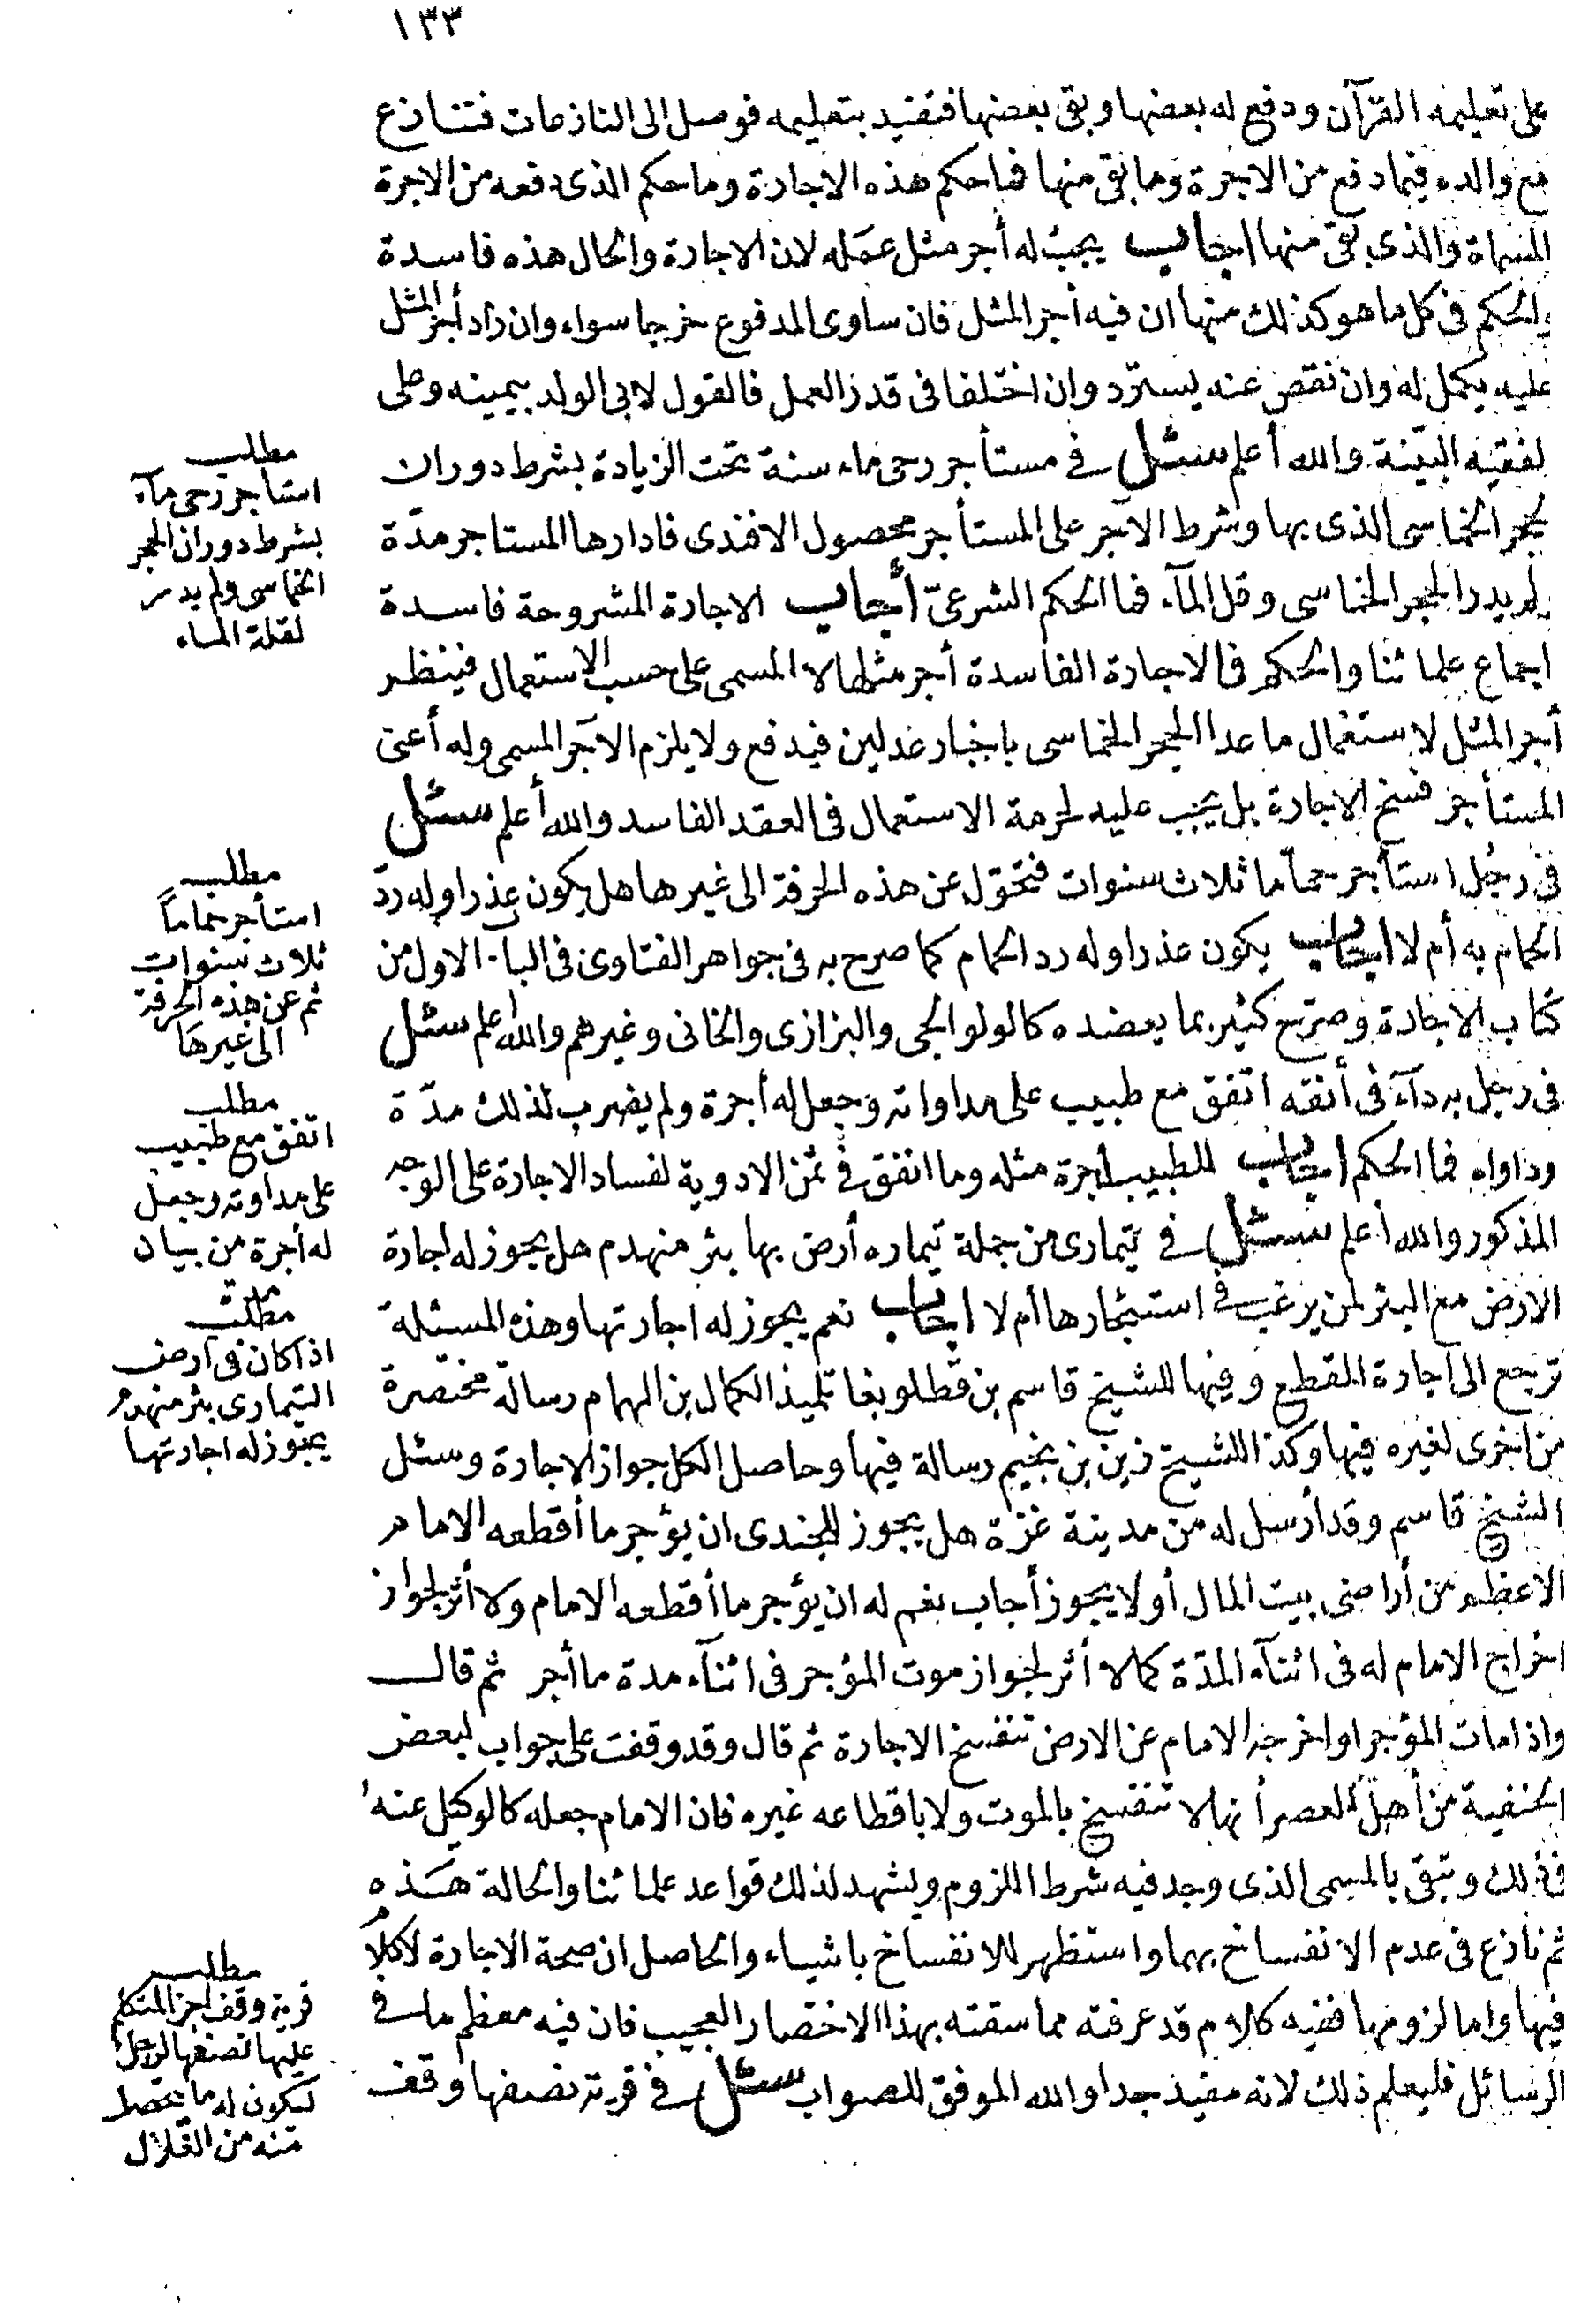 ١٣٣
على تعليمه القرآن ودفع له بعضها وبقى بعضها فتقيد بتعليمه فوصل الى النازعات فتنازع
مع والده فيما دفع من الاجرة وما بقى منها فما حكم هذه الاجارة وما حكم الذى دفعه من الاجرة
المسماة والذى بقى منها اجاب يجب له أجر مثل عمله لان الاجارة والحال هذه فاسدة
والحكم فى كل ما هو كذلك منها ان فيه أجر المثل فان ساوى المدفوع خرجا سواء وان زاد أجر المثل
عليه يكمل له وان نقص عنه يسترد وان اختلفا فى قدر العمل فالقول لابى الولد بيمينه وعلى
لفقيه البينة والله أعلم سئل فى مستأجر رحى ماء سنة تحت الزيادة بشرط دوران
لحجر الخماسى الذى بها وشرط الآجر على المستأجر محصول الافندى فادارها المستاجر مدة
ولم يدر الحجر الخماسى وقل المآء فما الحكم الشرعى أجاب الاجارة المشروحة فاسدة
اجماع علمائنا والحكم فى الاجارة الفاسدة أجر مثلها لا المسمى على حسب الاستعمال فينظر
أجر المثل لاستعمال ما عدا الحجر الخماسى باخبار عدلين فيدفع ولا يلزم الآجر المسمى وله أعنى
المستأجر فسخ الاجارة بل يجب عليه لحرمة الاستعمال فى العقد الفاسد والله أعلم سئل
فى رجل استأجر حماما ثلاث سنوات فتحول عن هذه الحرفة الى غيرها هل يكون عذرا وله رد
الحمام به أم لا اجاب يكون عذرا وله رد الحمام كما صرح به فى جواهر الفتاوى فى الباب الاول من
كتاب الاجارة وصرح كثير بما يعضده كالولوالجى والبزازى والخانى وغيرهم والله اعلم سئل
فى رجل به دآء فى أنفه اتفق مع طبيب على مداواته وجعل له أجرة ولم يضرب لذلك مدة
وداواه فما الحكم اجاب للطبيب أجرة مثله وما انفق فى ثمن الادوية لفساد الاجارة على الوجه
المذكور والله أعلم سئل فى تيمارى من جملة تيماره أرض بها بئر منهدم هل يجوز له اجارة
الارض مع البئر لمن يرغب فى استئجارها أم لا اجاب نعم يجوز له اجارتها وهذه المسئلة
ترجع الى اجارة المقطع وفيها للشيخ قاسم بن قطلوبغا تلميذ الكمال بن الهمام رسالة مختصرة
من اخرى لغيره فيها وكذا للشيخ زين بن نجيم رسالة فيها وحاصل الكل جواز الاجارة وسئل
الشيخ قاسم وقد أرسل له من مدينة غزة هل يجوز للجندى ان يؤجر ما أقطعه الامام
الاعظم من أراضى بيت المال أو لا يجوز أجاب نعم له ان يؤجر ما أقطعه الامام ولا أثر لجواز
اخراج الامام له فى اثنآء المدة كما لا أثر لجواز موت المؤجر فى اثنآء مدة ما أجر ثم قال
واذا مات المؤجر او اخرجه الامام عن الارض تنفسخ الاجارة ثم قال وقد وقفت على جواب لبعض
الحنفية من أهل العصر أنها لا تنفسخ بالموت ولا باقطاعه غيره فان الامام جعله كالوكيل عنه
فى ذلك وتبقى بالمسمى الذى وجد فيه شرط اللزوم ويشهد لذلك قواعد علمائنا والحالة هذه
ثم نازع فى عدم الانفساخ بهما واستظهر للانفساخ باشياء والحاصل ان صحة الاجارة لا كلام
فيها واما لزومها ففيه كلام قد عرفته مما سقته بهذا الاختصار العجيب فان فيه معظم ما فى
الرسائل فليعلم ذلك لانه مفيد جدا والله الموفق للصواب سئل فى قرية نصفها وقف
مطلب
استأجر رحى مآء
بشرط دوران الحجر
الخماسى ولم يدر
لقلة الماء
مطلب
استأجر حماماً
ثلاث سنوات
ثم عن هذه الحرفة
الى غيرها
مطلب
اتفق مع طبيب
على مداوته وجعل
له أجرة من بيان
مدة
مطلب
اذا كان فى أرض
التيمارى بئر منهدم
يجوز له اجارتها
مطلب
قرية وقف اجر المتكلم
عليها نصفها لرجل
ليكون له ما يتحصل
منه من الغلال